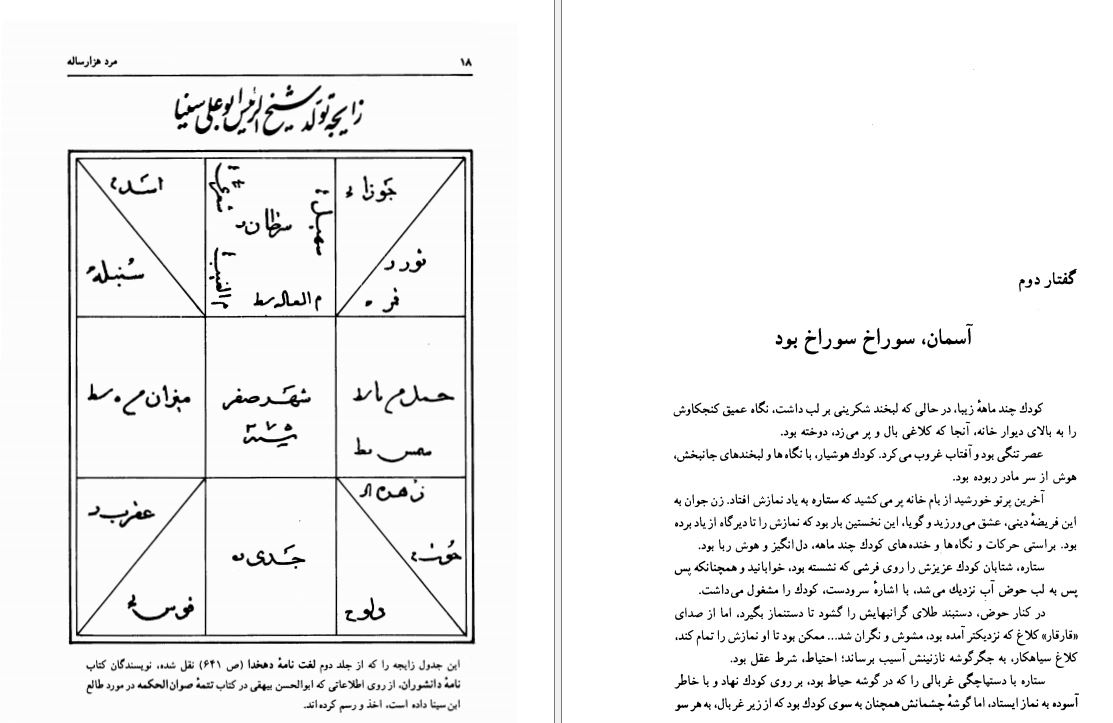 مرد هزارساله ۱۸
زایجه تولد شیخ الرئیس ابوعلی سینا
جوزا
سهیل
سرطان
شعری
اسد
ثور
قمر
م الغیب
سنبله
حمل
شهر صفر
۳۷۵
میزان
شمس
زهره
حوت
دلو
جدی
عقرب
قوس
این جدول زایجه را که از جلد دوم لغت نامهٔ دهخدا (ص ۶۴۱) نقل شده، نویسندگان کتاب
نامهٔ دانشوران، از روی اطلاعاتی که ابوالحسن بیهقی در کتاب تتمهٔ صوان‌الحکمه در مورد طالع
ابن سینا داده است، اخذ و رسم کرده‌اند.
گفتار دوم
آسمان، سوراخ سوراخ بود
کودك چند ماههٔ زیبا، در حالی که لبخند شکرینی بر لب داشت، نگاه عمیق کنجکاوش
را به بالای دیوار خانه، آنجا که کلاغی بال و پر می‌زد، دوخته بود.
عصر تنگی بود و آفتاب غروب می‌کرد. کودك هوشیار، با نگاه‌ها و لبخندهای جانبخش،
هوش از سر مادر ربوده بود.
آخرین پرتو خورشید از بام خانه پر می‌کشید که ستاره به یاد نمازش افتاد. زن جوان به
این فریضهٔ دینی، عشق می‌ورزید و گویا، این نخستین بار بود که نمازش را تا دیرگاه از یاد برده
بود. براستی حرکات و نگاه‌ها و خنده‌های کودك چند ماهه، دل‌انگیز و هوش ربا بود.
ستاره، شتابان کودك عزیزش را روی فرشی که نشسته بود، خوابانید و همچنانکه پس
پس به لب حوض آب نزدیك می‌شد، با اشارهٔ سرودست، کودك را مشغول می‌داشت.
در کنار حوض، دستبند طلای گرانبهایش را گشود تا دستنماز بگیرد، اما از صدای
«قارقار» کلاغ که نزدیکتر آمده بود، مشوش و نگران شد... ممکن بود تا او نمازش را تمام کند،
کلاغ سیاهکار، به جگرگوشه نازنینش آسیب برساند؛ احتیاط، شرط عقل بود.
ستاره با دستپاچگی غربالی را که در گوشه حیاط بود، بر روی کودك نهاد و با خاطر
آسوده به نماز ایستاد، اما گوشهٔ چشمانش همچنان به سوی کودك بود که از زیر غربال، به هر سو